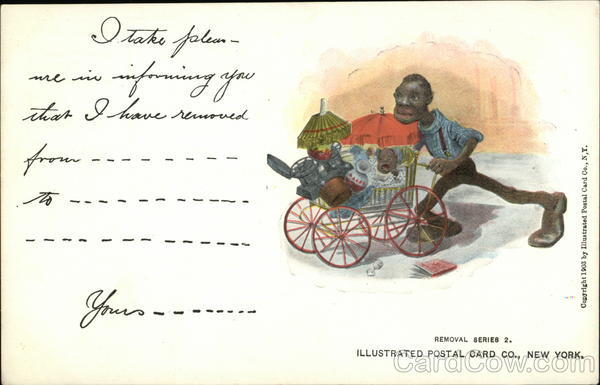 I take pleas-
ure in informing you
that I have removed
from --------
to ----------
-------------
Yours -------
Copyright 1903 by Illustrated Postal Card Co., N.Y.
REMOVAL SERIES 2.
ILLUSTRATED POSTAL CARD CO., NEW YORK.
CardCow.com